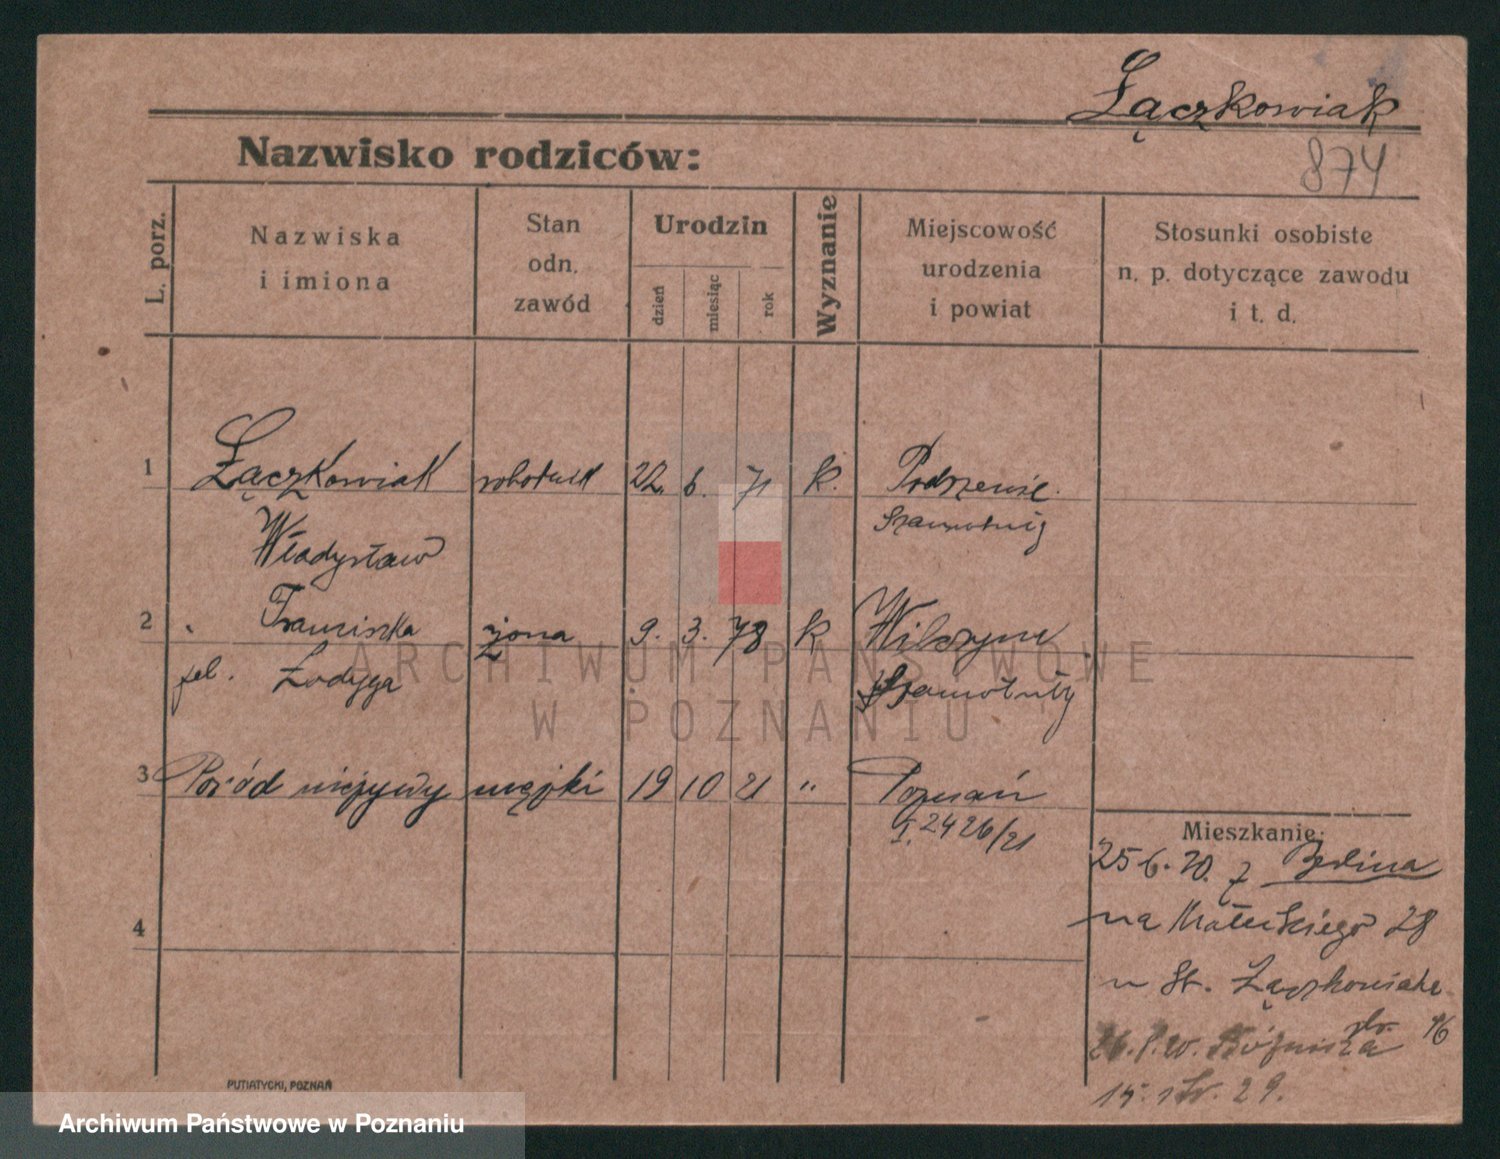 Łączkowiak
874
Nazwisko rodziców:
L. porz.
Nazwiska
i imiona
Stan
odn.
zawód
Urodzin
dzień
miesiąc
rok
Wyznanie
Miejscowość
urodzenia
i powiat
Stosunki osobiste
n. p. dotyczące zawodu
i t. d.
1 Łączkowiak robotnik 22. 6. 71 k.
Szamotuły
Władysław
2 " Franciszka żona 9. 3. 78 k Wilczyna
Szamotuły
3 Poród nieżywy męski 19 10 21 " Poznań
I. 2426/21
4
Mieszkanie:
25 6. 20. z Berlina
na Małeckiego 28
u St. Łączkowiaka
26. 8. 20. 16
29.
PUTIATYCKI, POZNAŃ
ARCHIWUM PAŃSTWOWE
W POZNANIU
Archiwum Państwowe w Poznaniu